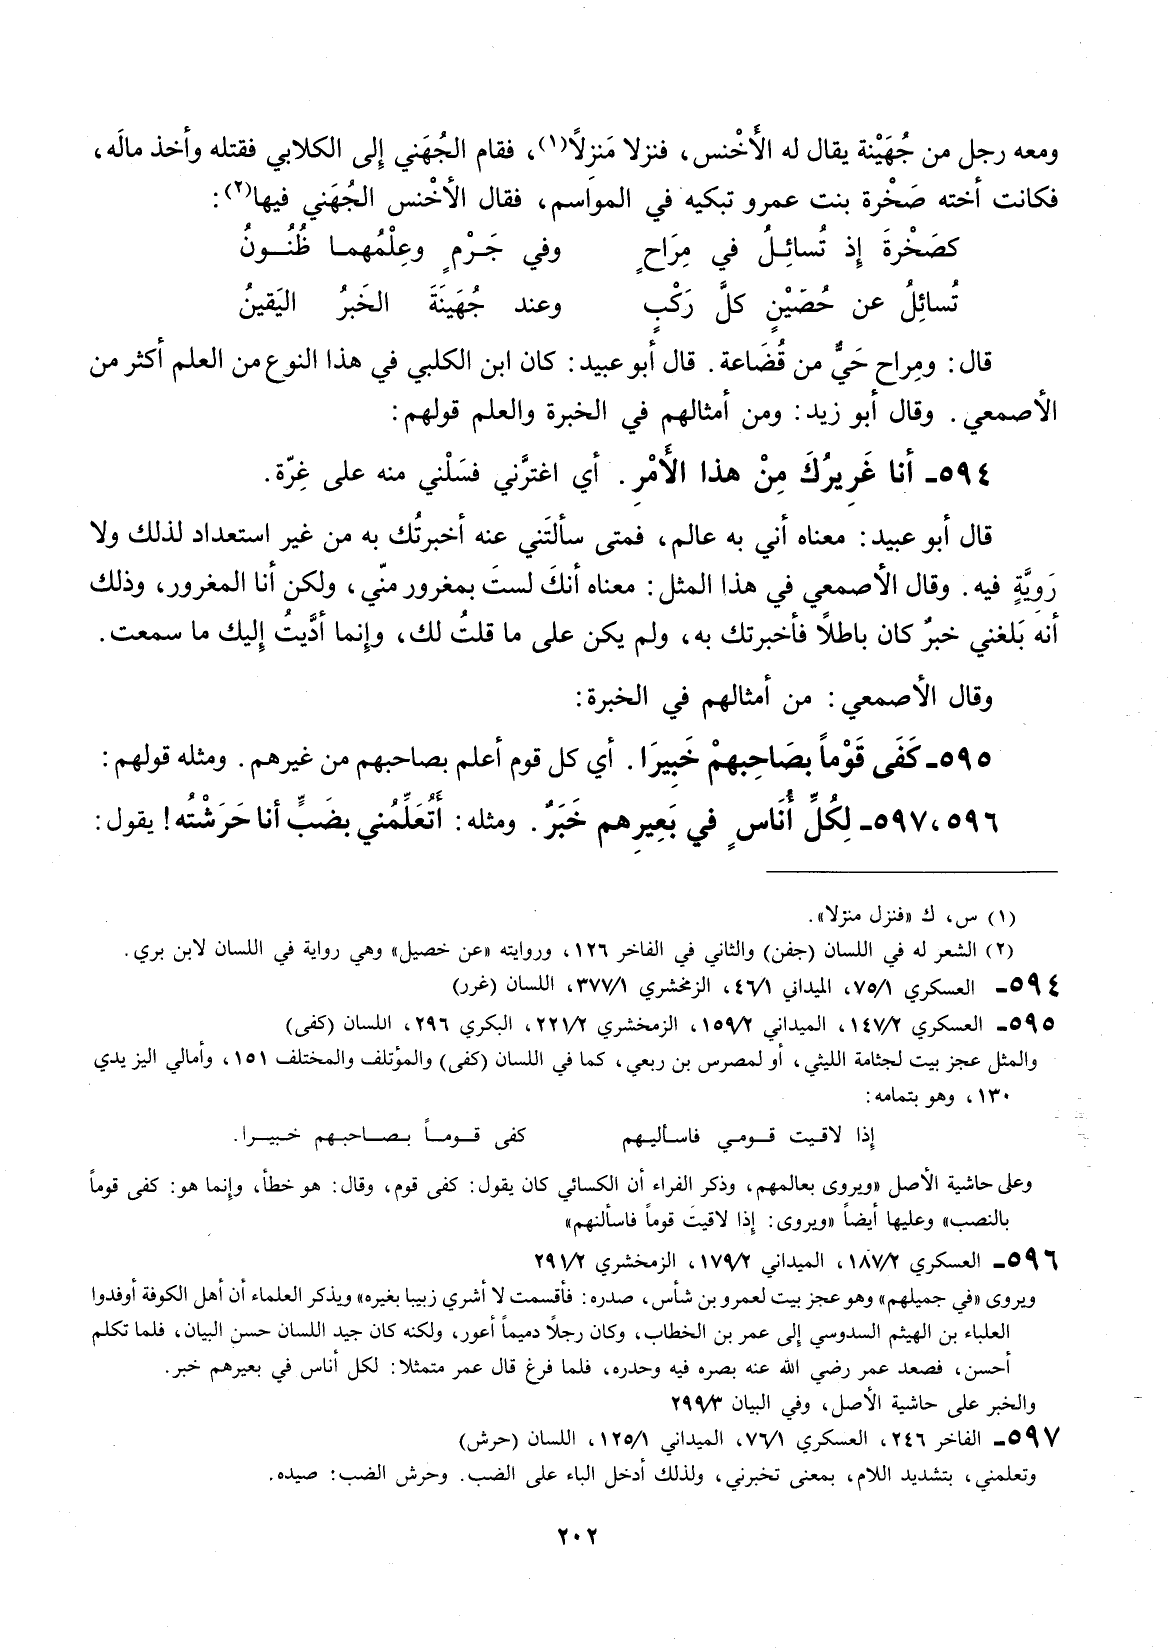 ومعه رجل من جُهَيْنة يقال له الأَخْنس، فنزلا مَنزِلاً(١)، فقام الجُهَني إلى الكلابي فقتله وأخذ مالَه،
فكانت أخته صَخْرة بنت عمرو تبكيه في المواسم، فقال الأخْنس الجُهَني فيها(٢):
كصَخْرةَ إذ تُسائِلُ في مِرَاحٍ وفي جَرْمٍ وعِلْمُهما ظُنُونُ
تُسائِلُ عن حُصَيْنٍ كلَّ رَكْبٍ وعند جُهَينَةَ الخَبرُ اليَقينُ
قال: ومِراح حَيٌّ من قُضَاعة. قال أبو عبيد: كان ابن الكلبي في هذا النوع من العلم أكثر من
الأصمعي. وقال أبو زيد: ومن أمثالهم في الخبرة والعلم قولهم:
٥٩٤ـ أنا غَرِيرُكَ مِنْ هذا الأَمْرِ. أي اغترَّني فسَلْني منه على غِرّة.
قال أبو عبيد: معناه أني به عالم، فمتى سألتَني عنه أخبرتُك به من غير استعداد لذلك ولا
رَوِيَّةٍ فيه. وقال الأصمعي في هذا المثل: معناه أنكَ لستَ بمغرور منّي، ولكن أنا المغرور، وذلك
أنه بَلغني خبرٌ كان باطلاً فأخبرتك به، ولم يكن على ما قلتُ لك، وإنما أدَّيتُ إليك ما سمعت.
وقال الأصمعي: من أمثالهم في الخبرة:
٥٩٥ـ كَفَى قَوْماً بصَاحِبهمْ خَبِيرَا. أي كل قوم أعلم بصاحبهم من غيرهم. ومثله قولهم:
٥٩٦، ٥٩٧ـ لِكُلِّ أُنَاسٍ في بَعِيرِهم خَبَرٌ. ومثله: أَتُعَلِّمُني بضَبٍّ أنا حَرَشْتُه! يقول:
(١) س، ك «فنزل منزلا».
(٢) الشعر له في اللسان (جفن) والثاني في الفاخر ١٢٦، وروايته «عن خصيل» وهي رواية في اللسان لابن بري.
٥٩٤ـ العسكري ٧٥/١، الميداني ٤٦/١، الزمخشري ٣٧٧/١، اللسان (غرر)
٥٩٥ـ العسكري ١٤٧/٢، الميداني ١٥٩/٢، الزمخشري ٢٢١/٢، البكري ٢٩٦، اللسان (كفى)
والمثل عجز بيت لجثامة الليثي، أو لمصرس بن ربعي، كما في اللسان (كفى) والمؤتلف والمختلف ١٥١، وأمالي اليزيدي
١٣٠، وهو بتمامه:
إذا لاقيت قومي فاسأليهم كفى قوماً بصاحبهم خبيرا.
وعلى حاشية الأصل «ويروى بعالمهم، وذكر الفراء أن الكسائي كان يقول: كفى قوم، وقال: هو خطأ، وإنما هو: كفى قوماً
بالنصب» وعليها أيضاً «ويروى: إذا لاقيتَ قوماً فاسألنهم»
٥٩٦ـ العسكري ١٨٧/٢، الميداني ١٧٩/٢، الزمخشري ٢٩١/٢
ويروى «في جميلهم» وهو عجز بيت لعمرو بن شأس، صدره: فأقسمت لا أشري زبيبا بغيره» ويذكر العلماء أن أهل الكوفة أوفدوا
العلباء بن الهيثم السدوسي إلى عمر بن الخطاب، وكان رجلاً دميماً أعور، ولكنه كان جيد اللسان حسن البيان، فلما تكلم
أحسن، فصعد عمر رضي الله عنه بصره فيه وحدره، فلما فرغ قال عمر متمثلا: لكل أناس في بعيرهم خبر.
والخبر على حاشية الأصل، وفي البيان ٢٩٩/٣
٥٩٧ـ الفاخر ٢٤٦، العسكري ٧٦/١، الميداني ١٢٥/١، اللسان (حرش)
وتعلمني، بتشديد اللام، بمعنى تخبرني، ولذلك أدخل الباء على الضب. وحرش الضب: صيده.
٢٠٢